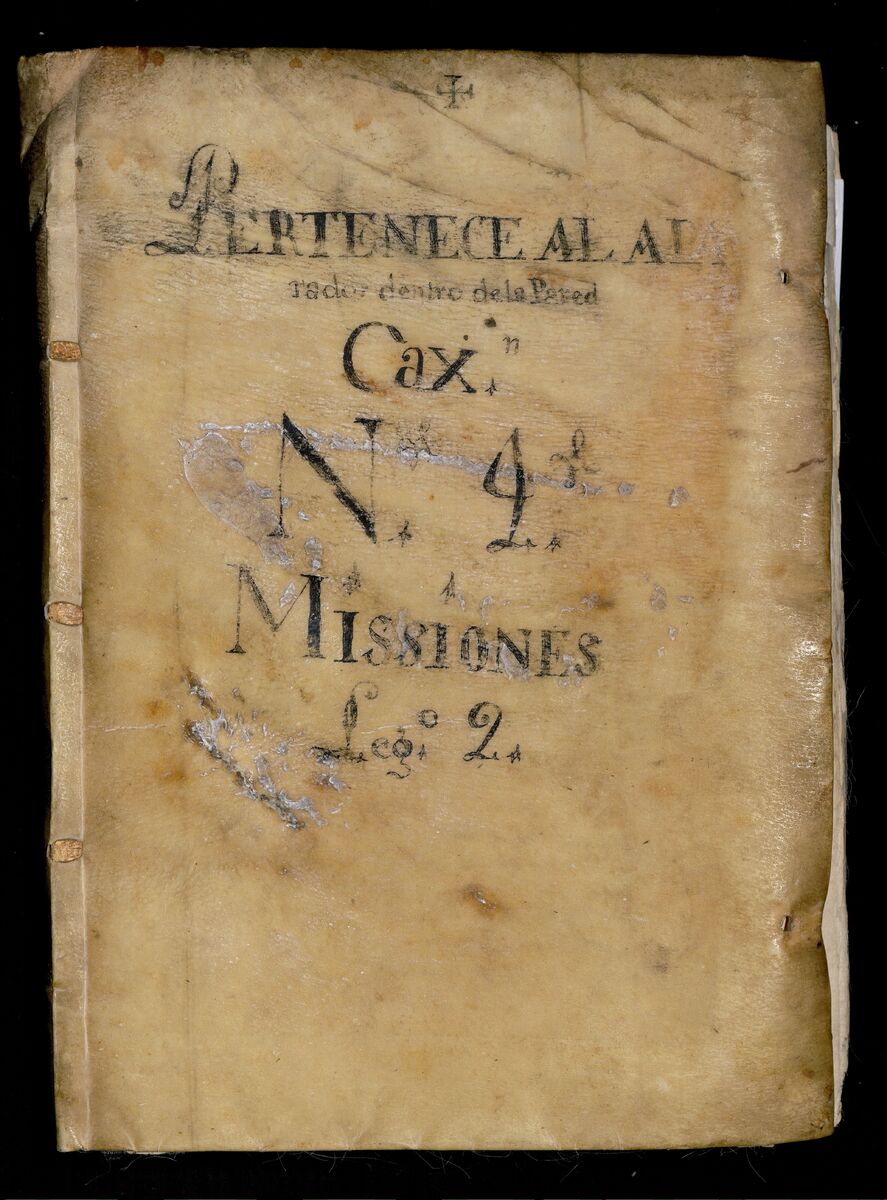 PERTENECE AL APA
rador dentro dela Pared
Cax.ⁿ
N. 4.
MISSIONES
Leg.º 2.